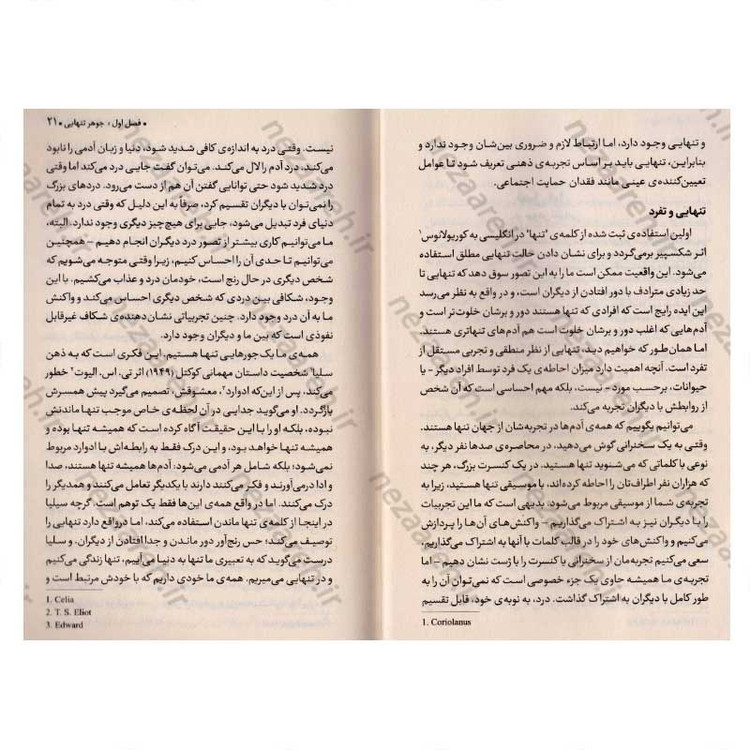 و تنهایی وجود دارد، اما ارتباط لازم و ضروری بین‌شان وجود ندارد و
بنابراین، تنهایی باید بر اساس تجربه‌ی ذهنی تعریف شود تا عوامل
تعیین‌کننده‌ی عینی مانند فقدان حمایت اجتماعی.
تنهایی و تفرد
اولین استفاده‌ی ثبت شده از کلمه‌ی "تنها" در انگلیسی به کوریولانوس۱
اثر شکسپیر برمی‌گردد و برای نشان دادن حالتِ تنهایی مطلق استفاده
می‌شود. این واقعیت ممکن است ما را به این تصور سوق دهد که تنهایی تا
حد زیادی مترادف با دور افتادن از دیگران است، و در واقع به نظر می‌رسد
این ایده رایج است که افرادی که تنها هستند دور و برشان خلوت‌تر است و
آدم‌هایی که اغلب دور و برشان خلوت است هم آدم‌های تنهاتری هستند.
اما همان‌طور که خواهیم دید، تنهایی از نظر منطقی و تجربی مستقل از
تفرد است. آنچه اهمیت دارد میزان احاطه‌ی یک فرد توسط افراد دیگر – یا
حیوانات، برحسب مورد – نیست، بلکه مهم احساسی است که آن شخص
از روابطش با دیگران تجربه می‌کند.
می‌توانیم بگوییم که همه‌ی آدم‌ها در تجربه‌شان از جهان تنها هستند.
وقتی به یک سخنرانی گوش می‌دهید، در محاصره‌ی صدها نفر دیگر، به
نوعی با کلماتی که می‌شنوید تنها هستید. در یک کنسرت بزرگ، هر چند
که هزاران نفر اطراف‌تان را احاطه کرده‌اند، با موسیقی تنها هستید، زیرا به
تجربه‌ی شما از موسیقی مربوط می‌شود. بدیهی است که ما این تجربیات
را با دیگران نیز به اشتراک می‌گذاریم – واکنش‌های آن‌ها را پردازش
می‌کنیم و واکنش‌های خود را در قالب کلمات با آنها به اشتراک می‌گذاریم،
سعی می‌کنیم تجربه‌مان از سخنرانی یا کنسرت را با ژست نشان دهیم – اما
تجربه‌ی ما همیشه حاوی یک جزء خصوصی است که نمی‌توان آن را به
طور کامل با دیگران به اشتراک گذاشت. درد، به نوبه‌ی خود، قابل تقسیم
1. Coriolanus
• فصل اول: جوهر تنهایی • ۲۱
نیست. وقتی درد به اندازه‌ی کافی شدید شود، دنیا و زبان آدمی را نابود
می‌کند. درد آدم را لال می‌کند. می‌توان گفت جایی درد می‌کند اما وقتی
درد شدید شود حتی توانایی گفتن آن هم از دست می‌رود. دردهای بزرگ
را نمی‌توان با دیگران تقسیم کرد، صرفاً به این دلیل که وقتی درد به تمام
دنیای فرد تبدیل می‌شود، جایی برای هیچ‌چیز دیگری وجود ندارد. البته،
ما می‌توانیم کاری بیشتر از تصور درد دیگران انجام دهیم – همچنین
می‌توانیم تا حدی آن را احساس کنیم، زیرا وقتی متوجه می‌شویم که
شخص دیگری در حال رنج است، خودمان درد و عذاب می‌کشیم. با این
وجود، شکافی بین دردی که شخص دیگری احساس می‌کند و واکنش
ما به آن درد وجود دارد. چنین تجربیاتی نشان‌دهنده‌ی شکاف غیرقابل
نفوذی است که بین ما و دیگران وجود دارد.
همه‌ی ما یک جورهایی تنها هستیم. این فکری است که به ذهن
سلیا۱ شخصیت داستان مهمانی کوکتل (۱۹۴۹) اثر تی. اس. الیوت۲ خطور
می‌کند، پس از این‌که ادوارد۳، معشوقش، تصمیم می‌گیرد پیش همسرش
بازگردد. او می‌گوید جدایی در آن لحظه‌ی خاص موجب تنها ماندنش
نبوده، بلکه او را با این حقیقت آگاه کرده است که همیشه تنها بوده و
همیشه تنها خواهد بود، و این درک فقط به رابطه‌اش با ادوارد مربوط
نمی‌شود؛ بلکه شامل هر آدمی می‌شود: آدم‌ها همیشه تنها هستند، صدا
و ادا درمی‌آورند و فکر می‌کنند دارند با یکدیگر تعامل می‌کنند و همدیگر را
درک می‌کنند. اما در واقع همه‌ی این‌ها فقط یک توهم است. گرچه سیلیا
در اینجا از کلمه‌ی تنها ماندن استفاده می‌کند، اما درواقع دارد تنهایی را
توصیف می‌کند؛ حس رنج‌آور دور ماندن و جدا افتادن از دیگران. و سلیا
درست می‌گوید که به تعبیری ما تنها به دنیا می‌آییم، تنها زندگی می‌کنیم
و در تنهایی می‌میریم. همه‌ی ما خودی داریم که با خودش مرتبط است و
1. Celia
2. T. S. Eliot
3. Edward
nezaareh.ir